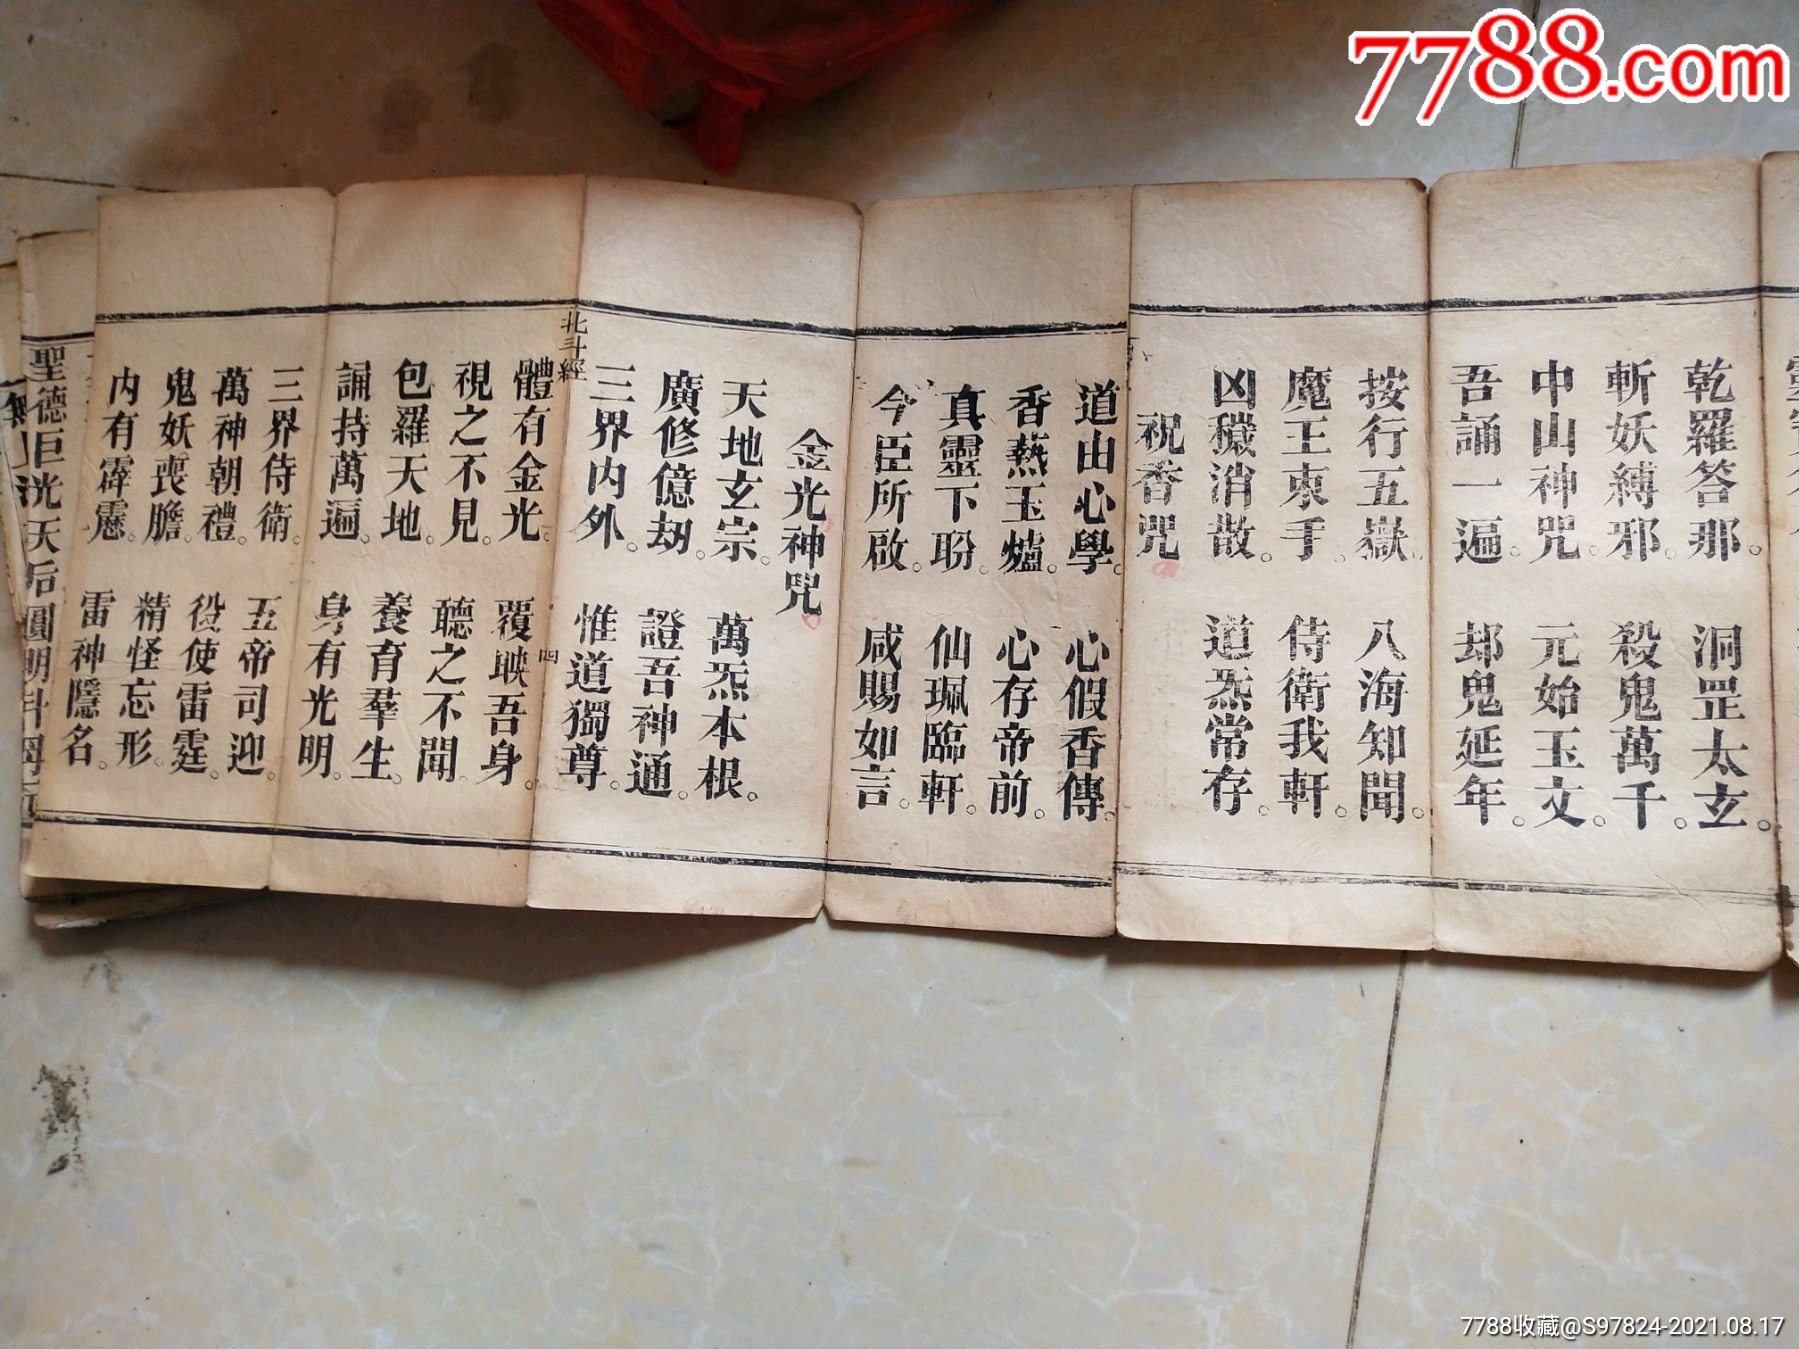 7788.com
乾羅答那。洞罡太玄。
斬妖縛邪。殺鬼萬千。
中山神咒。元始玉文。
吾誦一遍。却鬼延年。
按行五嶽。八海知聞。
魔王束手。侍衛我軒。
凶穢消散。道炁常存。
祝香咒
道由心學。心假香傳。
香爇玉爐。心存帝前。
真靈下盼。仙珮臨軒。
今臣所啟。咸賜如言。
金光神咒
天地玄宗。萬炁本根。
廣修億劫。證吾神通。
三界内外。惟道獨尊。
北斗經
四
體有金光。覆映吾身。
視之不見。聽之不聞。
包羅天地。養育羣生。
誦持萬遍。身有光明。
三界侍衛。五帝司迎。
萬神朝禮。役使雷霆。
鬼妖喪膽。精怪忘形。
内有霹靂。雷神隱名。
聖德巨洸天后圓明
7788收藏@S97824-2021.08.17